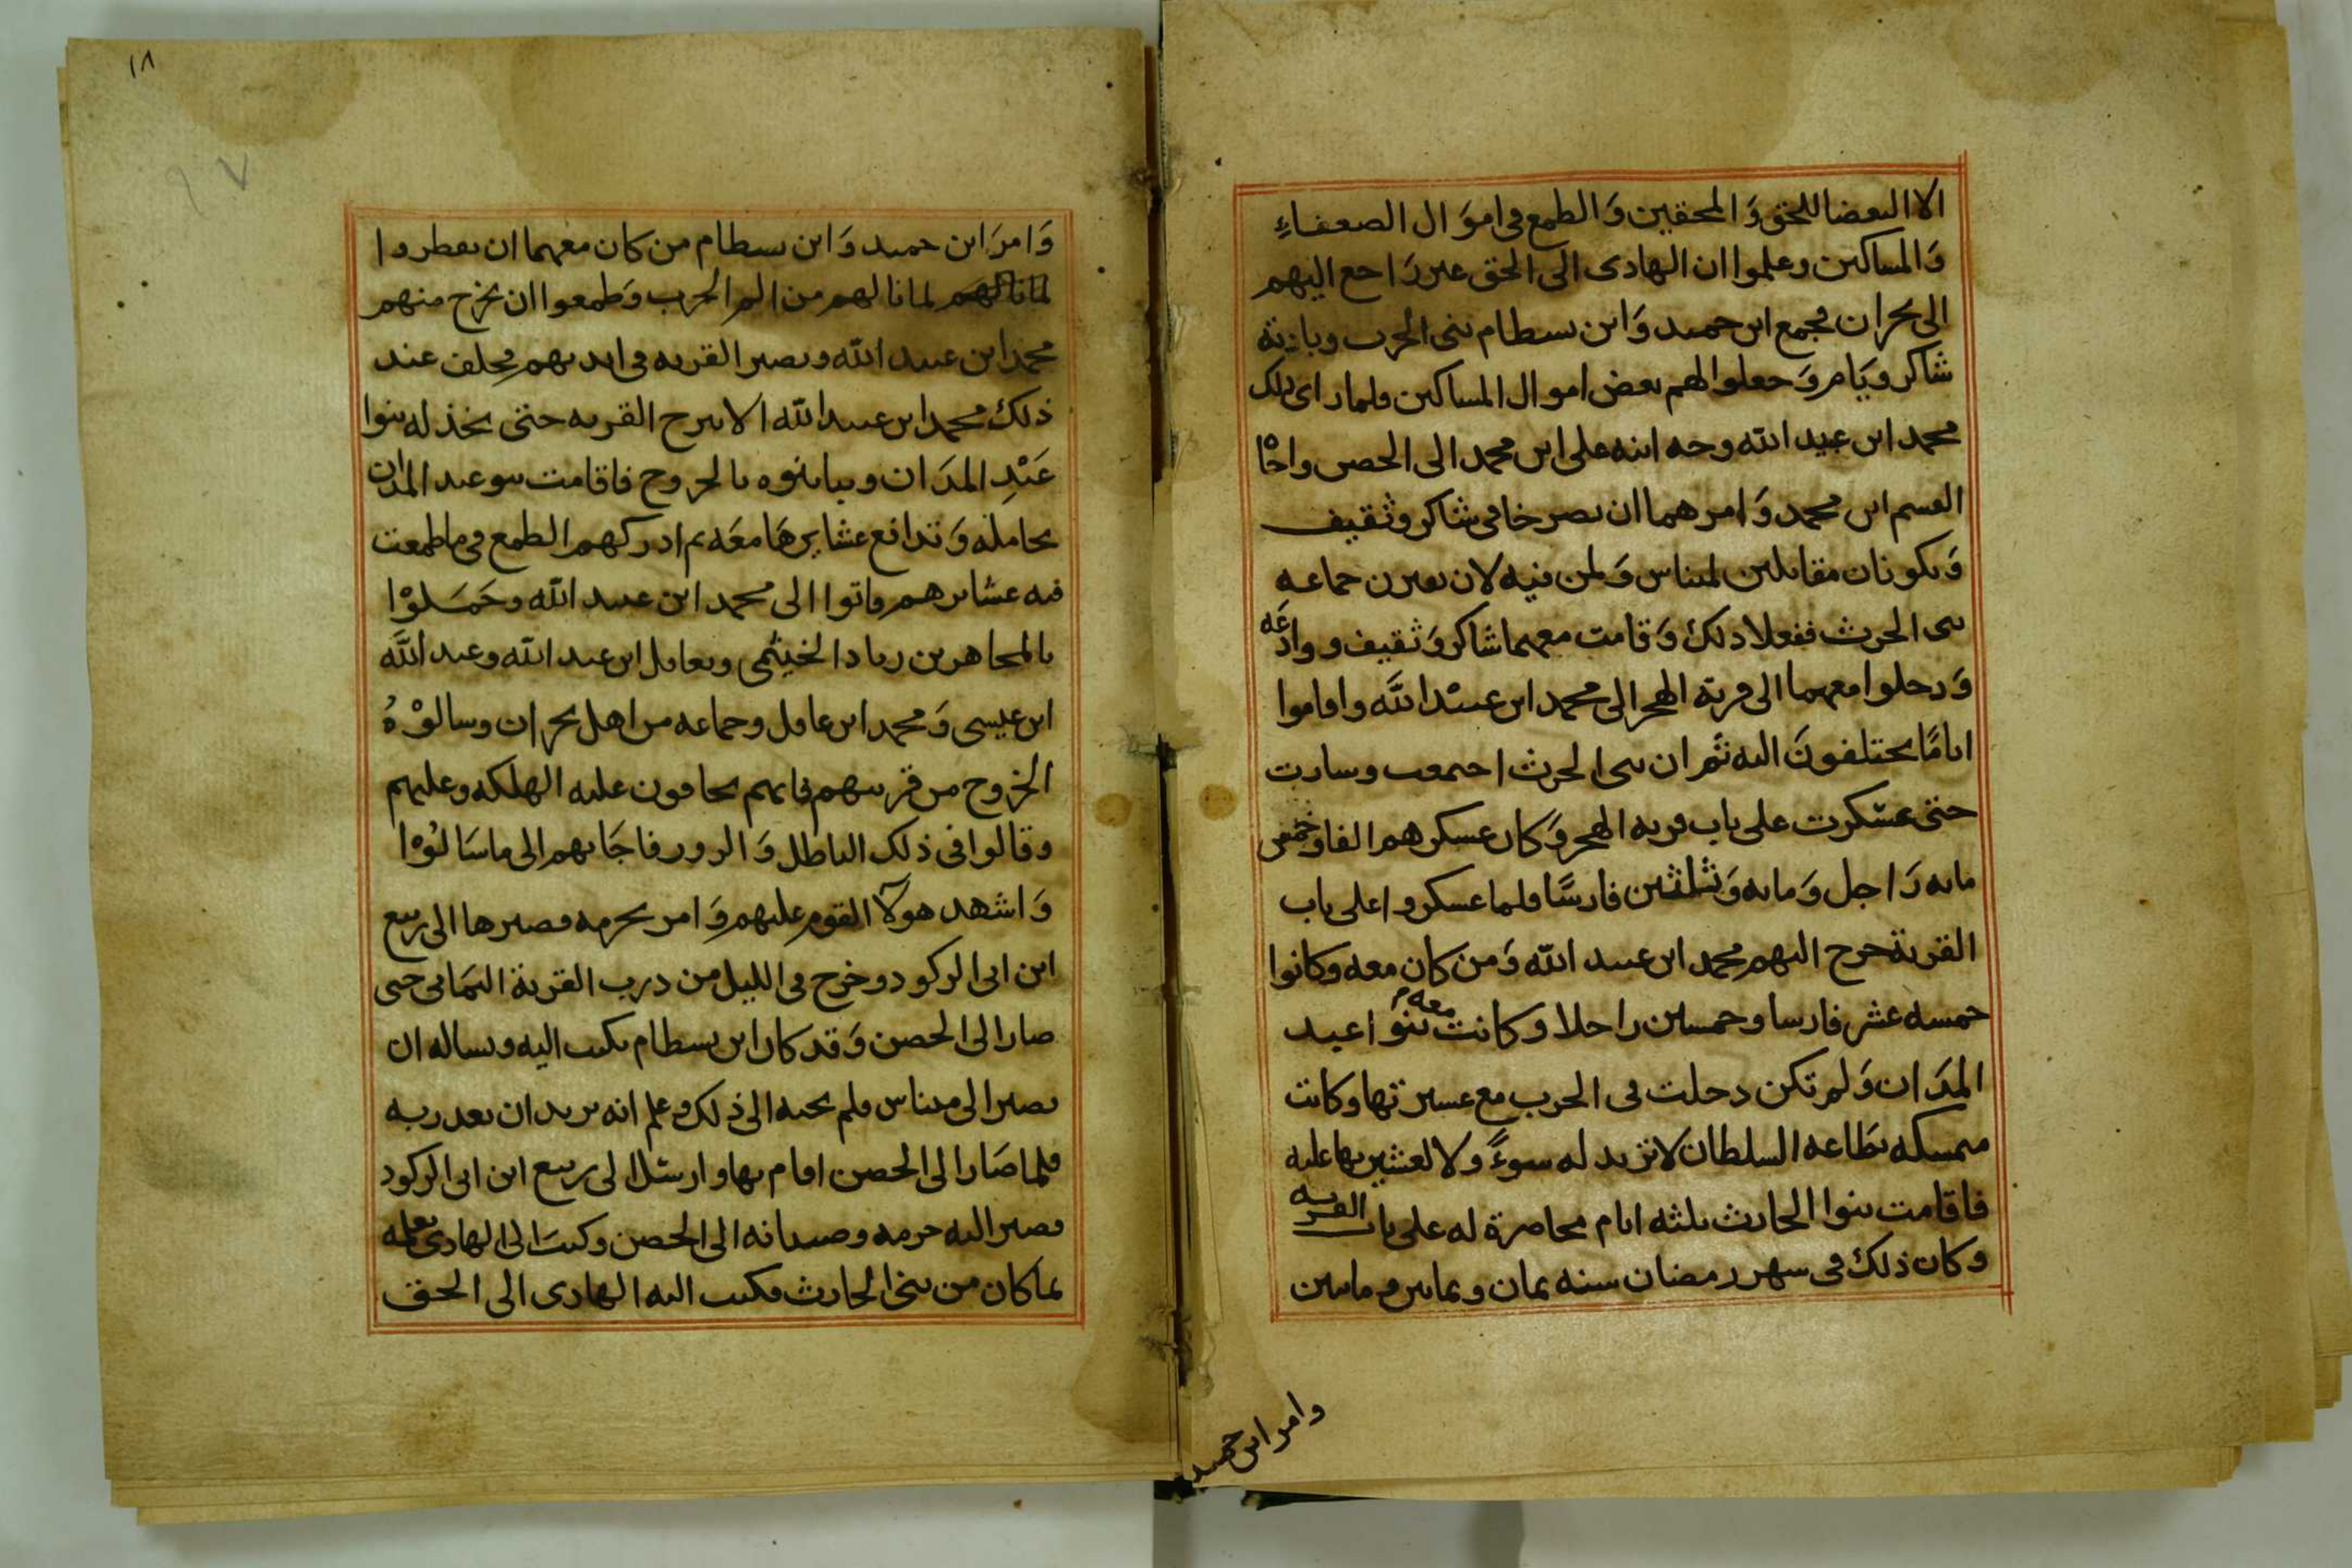 الا البغضا للحق وَ المحقين وَ الطمع فى اموَال الضعفاءِ
وَالمساكين وعلموا ان الهادى الى الحق غير رَاجع اليهم
الى نجران فجمع ابن حميد وَابن بسطام بنى الحرب وبازيه
شاكر ويَام وَجعلوا لهم بعض اموال المساكين فلما راى ذلك
محمد ابن عبيد الله وجه ابنه على ابن محمد الى الحصن واخاه
القسم ابن محمد وَامرهما ان يصرخا فى شاكر وثقيف
وَيكونان مقابلين لميناس وَلمن فيه لان يعيرن جماعه
بنى الحرث ففعلا ذلك وَقامت معهما شاكر وَثقيف ووادعَه
وَدخلوا معهما الى قرية الهجر الى محمد ابن عبيْد اللَّه واقاموا
ايامًا يختلفونَ اليه ثم ان بنى الحرث اجتمعت وسارت
حتى عسْكرت على باب قريه الهجر وَكان عسكرهم الفا وخمس
مايه رَاجل وَمايه وَثلثين فارسًا فلما عسكروا على باب
القرية خرج اليهم محمد ابن عبيد اللّه وَمن كان معه وكانوا
خمسه عشر فارسا وخمسين راجلا وكانت معه بنوا عبد
المدَان وَلم تكن دخلت فى الحرب مع عشيرتها وكانت
متمسكه بطاعه السلطان لا تريد له سوءً ولا لعشيرتها عليه
فاقامت بنوا الحارث ثلثه ايام محاصرة له على باب القريه
وكان ذلك فى شهر رمضان سنه ثمان وثمانين وماتين
وامر ابن حميد
١٨
وَامرَ ابن حميد وَابن بسطام من كان معهما ان يفطروا
لما نالهم لما نالهم من الم الحرب وَطمعوا ان يخرج منهم
محمد ابن عبيد اللّه وتصير القريه فى ايديهم فحلف عند
ذلك محمد ابن عبيد الله الا يبرح القريه حتى يخذله بنوا
عَبْدِ المدَان ويباينوه بالخروج فاقامت بنو عبد المدان
بحاملة وَتدافع عشايرهَا معَه ثم ادركهم الطمع فى ما طمعت
فيه عشايرهم فاتوا الى محمد ابن عبيد اللّه وحَمَلوْا
بالمجاهر بن زياد الخيثمى وبعامل ابن عبد الله وعبد اللَّه
ابن عيسى وَمحمد ابن عامل وجماعه من اهل نجران وسالوْهُ
الخروج من قريتهم فانهم يخافون عليه الهلكه وعليهم
وقالوا فى ذلك الباطل وَالزور فاجَابهم الى ما سَالوْا
وَاشهد هولآ القوم عليهم وَامر بحرمه فصيرها الى ربيع
ابن ابى الركود وخرج فى الليل من درب القرية اليمَانى حتى
صار الى الحصن وَقد كان ابن بسطام يكتب اليه ويساله ان
يصير الى ميناس فلم يجبه الى ذلك وعلم انه يريد ان يغدر به
فلما صَار الى الحصن اقام بها وارسْل الى ربيع ابن ابى الركود
فصير اليه حرمه وصبيانه الى الحصن وكتبَ الى الهادى يعلمه
بما كان من بنى الحارث فكتب اليه الهادى الى الحق